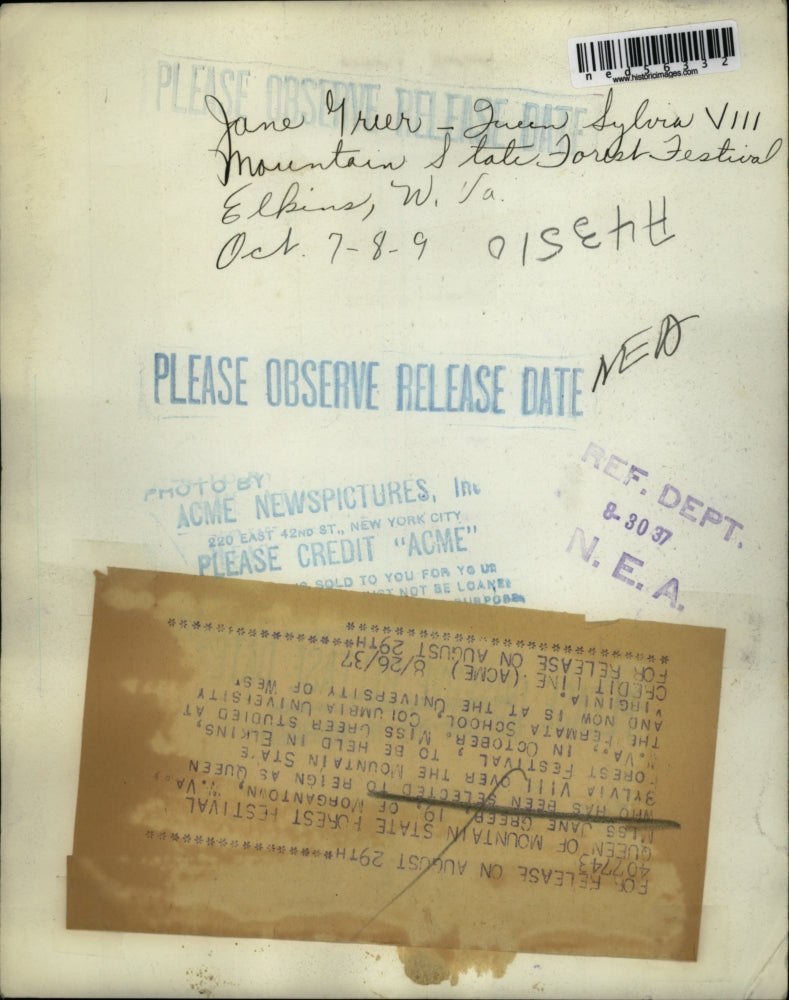 ned56332
www.historicimages.com
PLEASE OBSERVE RELEASE DATE
Jane Greer - Queen Sylvia VIII
Mountain State Forest Festival
Elkins, W. Va.
Oct. 7-8-9
A43510
PLEASE OBSERVE RELEASE DATE
NEA
PHOTO BY
ACME NEWSPICTURES, Inc
220 EAST 42ND ST., NEW YORK CITY
PLEASE CREDIT "ACME"
SOLD TO YOU FOR YOUR
NOT BE LOANED
PURPOSE
REF. DEPT.
8-30 37
N. E. A.
FOR RELEASE ON AUGUST 29TH********************
407743
QUEEN OF MOUNTAIN STATE FOREST FESTIVAL
MISS JANE GREER, 19, OF MORGANTOWN, W.VA.,
WHO HAS BEEN SELECTED TO REIGN AS QUEEN
SYLVIA VIII OVER THE MOUNTAIN STATE
FOREST FESTIVAL, TO BE HELD IN ELKINS,
W.VA., IN OCTOBER. MISS GREER STUDIED AT
THE FERMATA SCHOOL, COLUMBIA UNIVERSITY
AND NOW IS AT THE UNIVERSITY OF WEST
VIRGINIA.
CREDIT LINE (ACME) 8/26/37
FOR RELEASE ON AUGUST 29TH